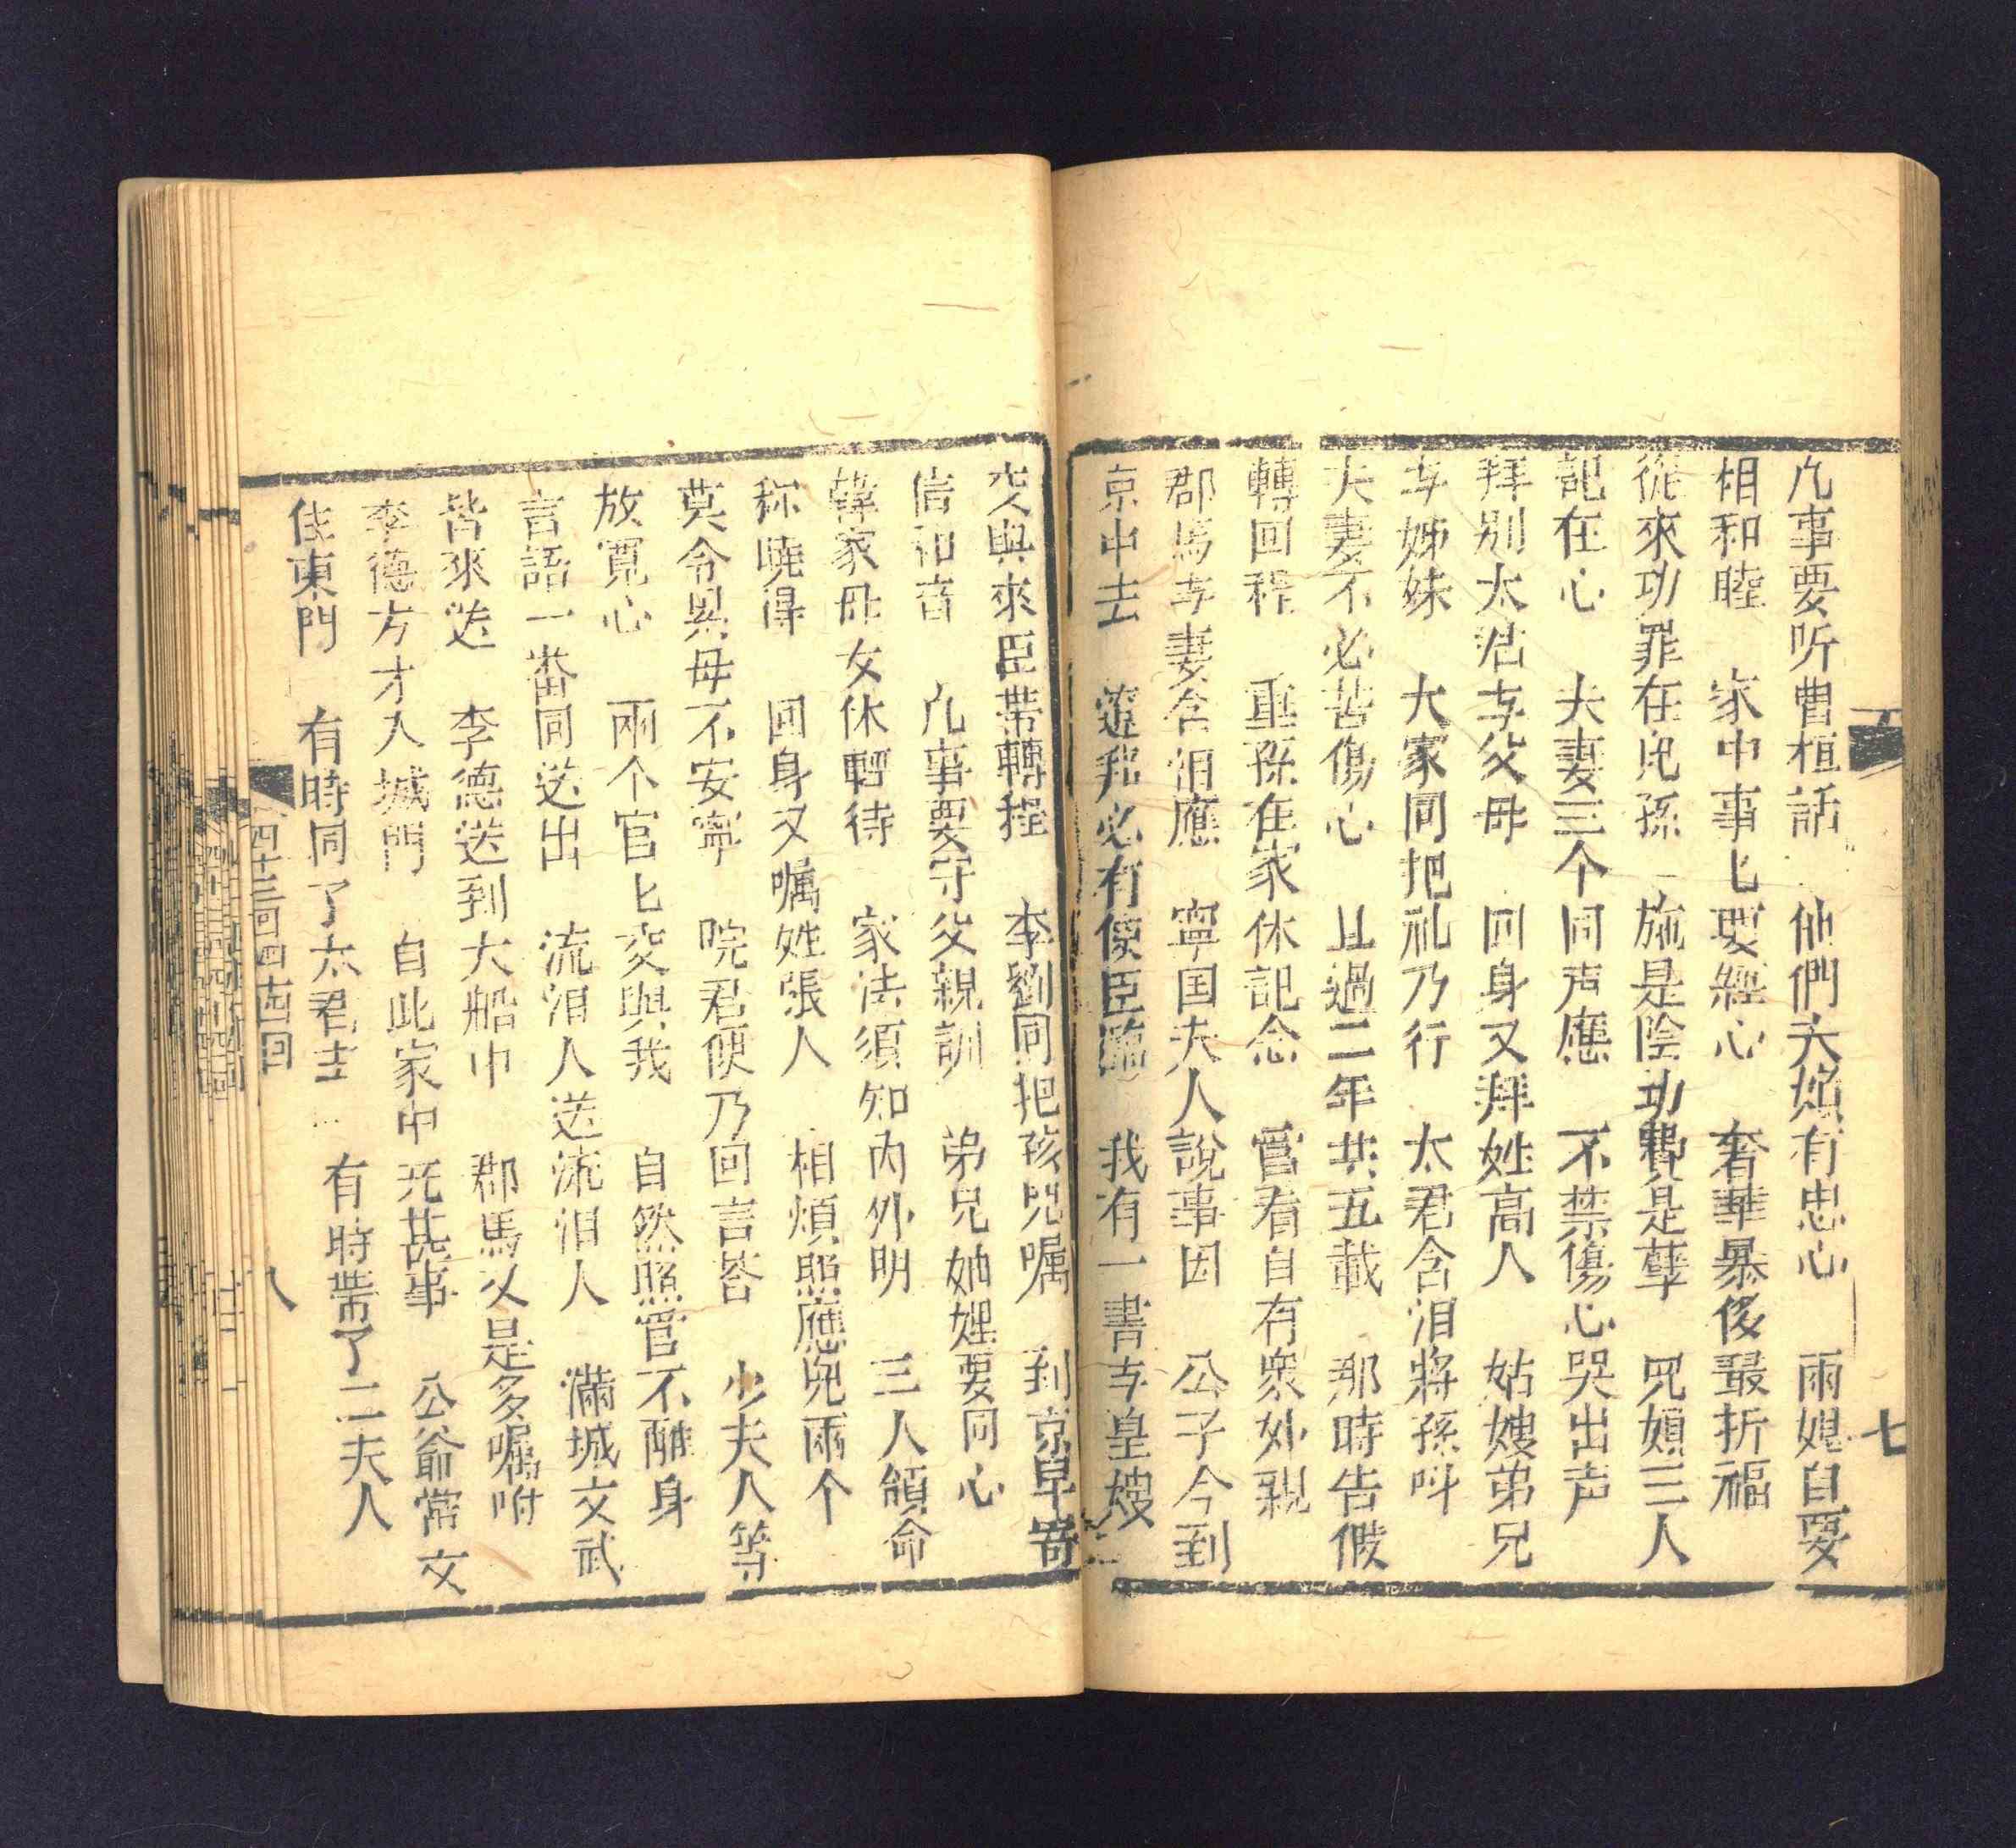 凡事要听曹桓話　他們夫婦有忠心　兩媳自要
相和睦　家中事匕要經心　奢華暴侈最折福
從來功罪在兒孫　施是陰功費是孽　兄嫂三人
記在心　夫妻三个同声應　不禁傷心哭出声
拜别太君㝍父母　回身又拜姓高人　姑嫂弟兄
㝍姊妹　大家同把礼乃行　太君含泪將孫呌
夫妻不必苦傷心　且過二年共五載　那時告假
轉回程　重孫在家休記念　當看自有衆妳親
郡馬㝍妻含泪應　寧国夫人說事因　公子今到
京中去　還我必有使臣臨　我有一書㝍皇嫂
交與來臣帶轉程　李劉同把孩兒嘱　到京早寄
信和音　凡事要守父親訓　弟兄妯娌要同心
韓家母女休輕待　家法須知內外明　三人領命
称曉得　回身又嘱姓張人　相煩照應兒兩个
莫令吳母不安寧　院君便乃回言答　少夫人等
放寬心　兩个官匕交與我　自然照管不離身
言語一番同送出　流泪人送流泪人　滿城文武
皆來送　李德送到大船中　郡馬又是多嘱咐
李德方才入城門　自此家中无甚事　公爺常文
住東門　有時同了太君去　有時帶了二夫人
四十三回四十四回
八
七